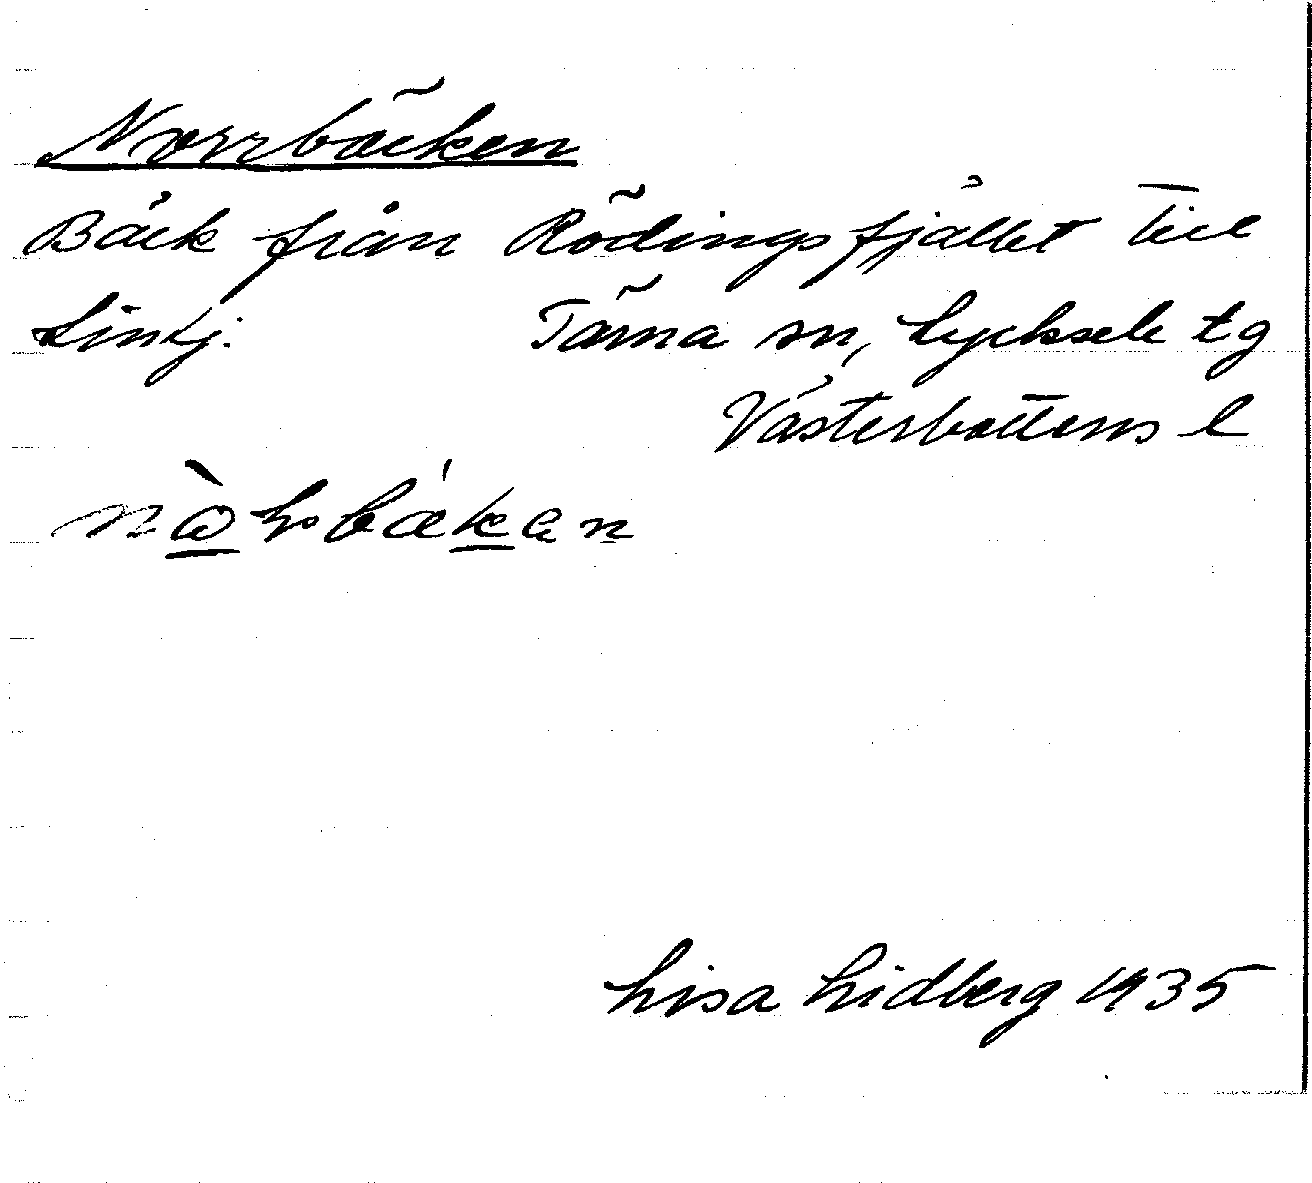 Norrbäcken
Bäck från Rödingsfjället till
Tärna sn, Lycksele tg
Västerbottens l
Lisa Lidberg 1935